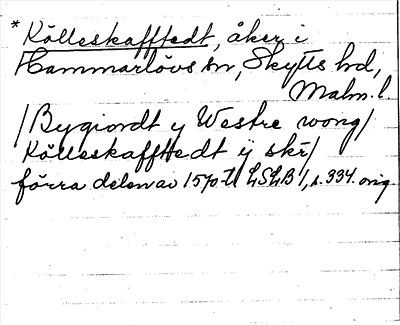 * Kölleskafftedt, åker i
Hammarlövs sn, Skytts hd,
Malm. l.
/Bygiordt y Westre wong/
Kölleskafftedt ij skr/
förra delen av 1570-t. LSLB 1, s. 334. orig.